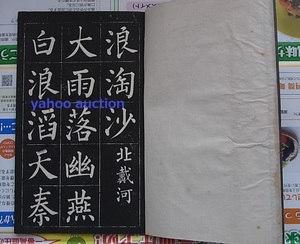 浪淘沙 北戴河
大雨落幽燕
白浪滔天秦
yahoo auction